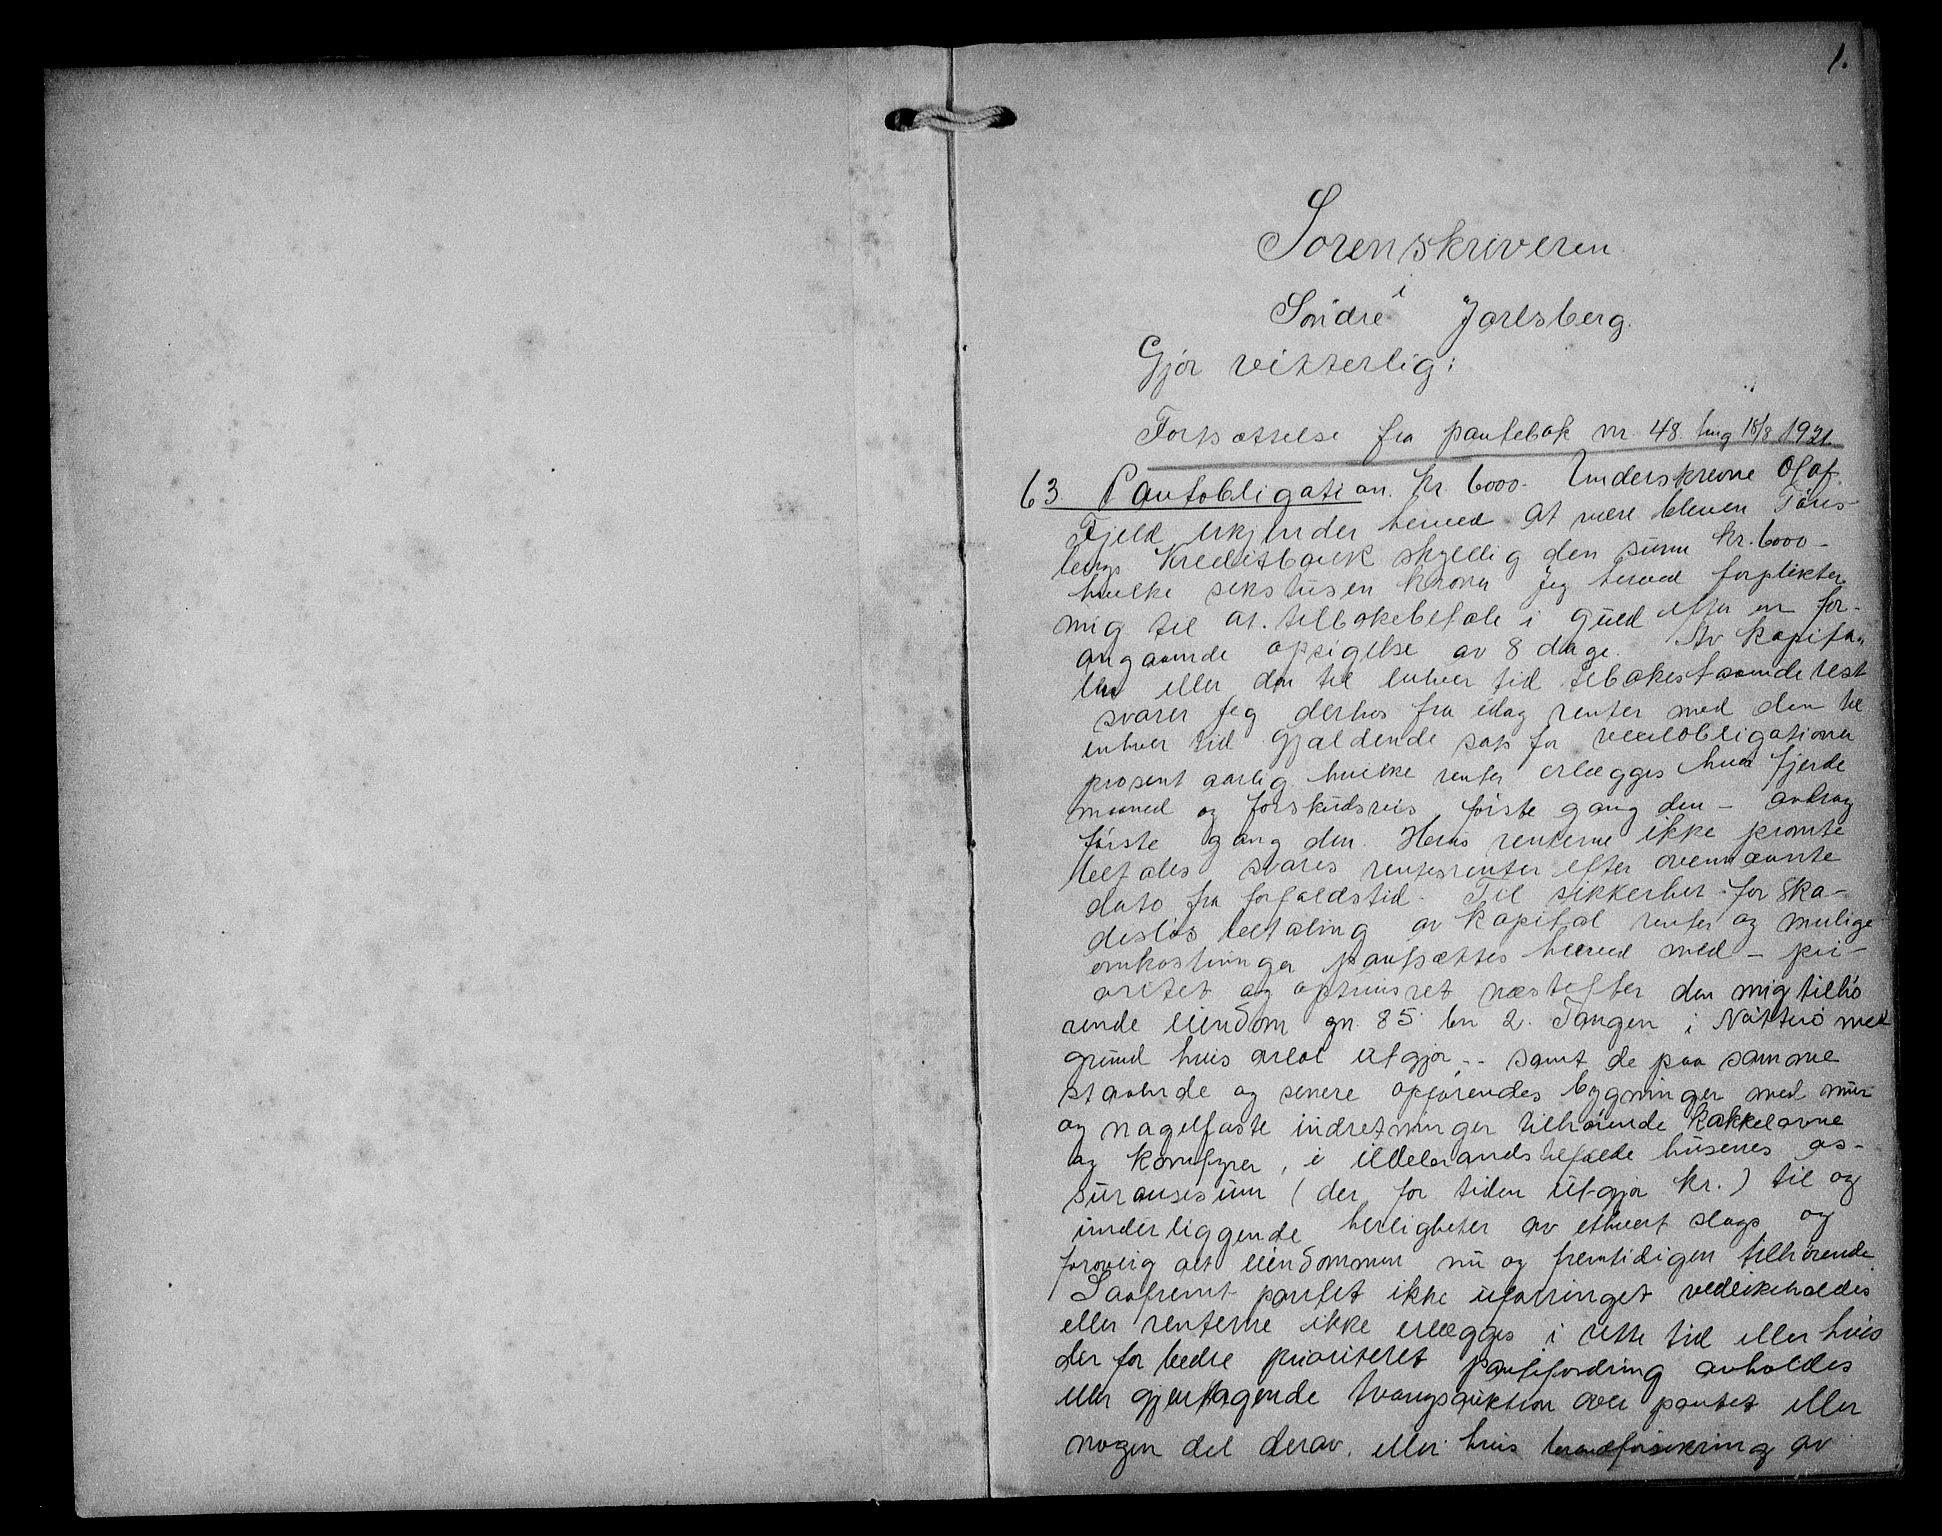 1.
Sorenskriveren
i
Söndre Jarlsberg.
Gjör vitterlig:
Fortsættelse fra pantebok nr. 48 ting 18/8 1921.
63. Pantobligation. Kr. 6000.- Underskrevne Olaf
Fjeld erkjender herved at være bleven Töns-
bergs Kreditbank skyldig den sum kr. 6000-
hvilke sekstusen kroner jeg herved forplikter
mig til at tilbakebetale i guld efter en for-
angaaende opsigelse av 8 dage. Av kapita-
len eller den til enhver tid tilbakestaaende rest
svarer jeg derhos fra idag renter med den til
enhver tid gjældende sats for vekselobligationer
prosent aarlig hvilke renter erlægges hver fjerde
maaned og forskudsvis, første gang den - avdrag
første gang den. Hvis renterne ikke promte
betales svares rentesrenter efter ovennævnte
dato fra forfaldstid. Til sikkerhet for ska-
deslös betaling av kapital renter og mulige
omkostninger pantsættes herved med - pri-
oritet og optrinsret næstefter den mig tilhö
rende eiendom gn. 85 bn 2. Tangen i Nötterö med
grund hvis areal utgjör -- samt de paa samme
staaende og senere opförendes bygninger med mur
og nagelfaste indretninger tilhörende kakkelovne
og komfyrer, i ildebrandstilfælde husenes as-
suransesum (der for tiden utgjör kr. ) til og
underliggende herligheter av ethvert slags og
forövrig alt eiendommen nu og fremtidigen tilhörende.
Saafremt pantet ikke uforringet vedlikeholdes
eller renterne ikke erlægges i rette tid eller hvis
der for bedre prioriteret pantefordring avholdes
eller gjentagende tvangsauktion over pantet eller
nogen del derav, eller hvis brandforsikring av